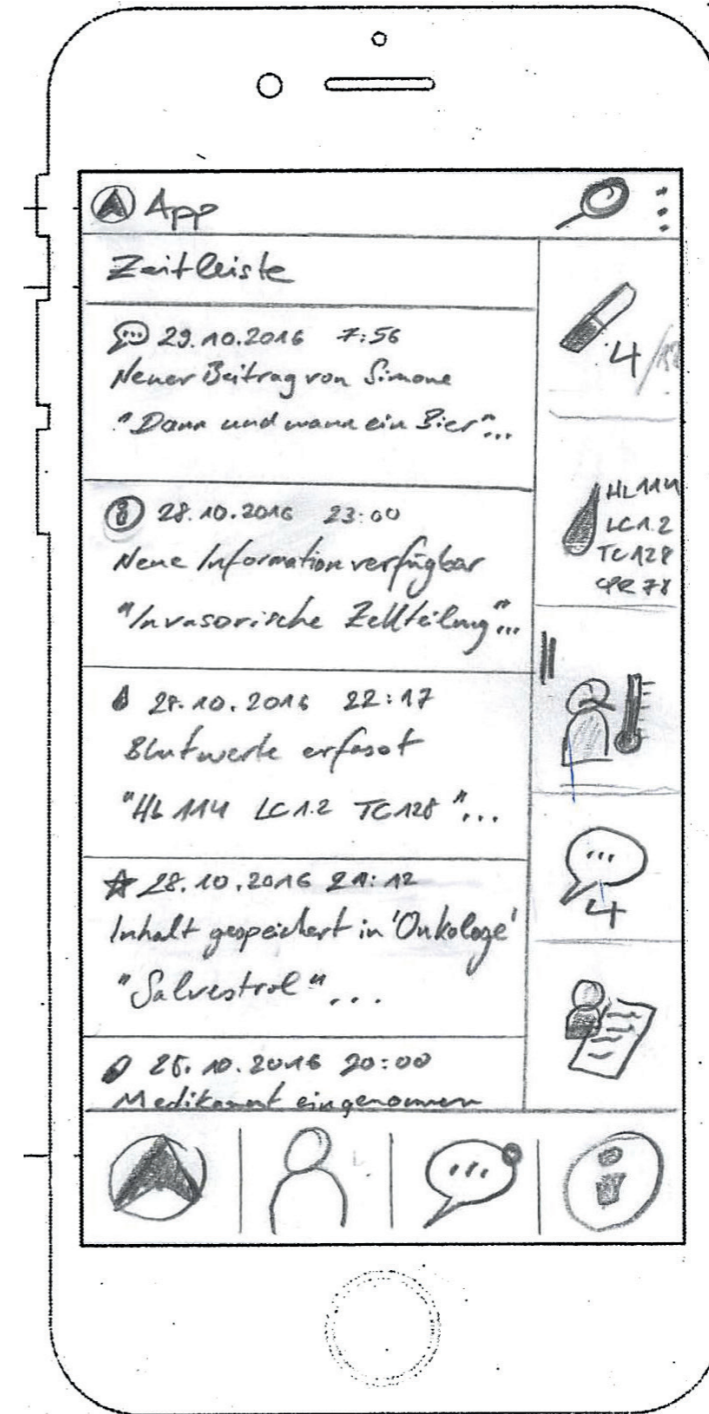 App
Zeitleiste
29.10.2016 7:56
Neuer Beitrag von Simone
"Dann und wann ein Bier"...
28.10.2016 23:00
Neue Information verfügbar
"Invasorische Zellteilung"...
28.10.2016 22:17
Blutwerte erfasst
"HL 114 LC 1.2 TC 128"...
28.10.2016 21:12
Inhalt gespeichert in 'Onkologe'
"Salvestrol"...
28.10.2016 20:00
Medikament eingenommen
4/
HL 114
LC 1.2
TC 128
CPR 78
4